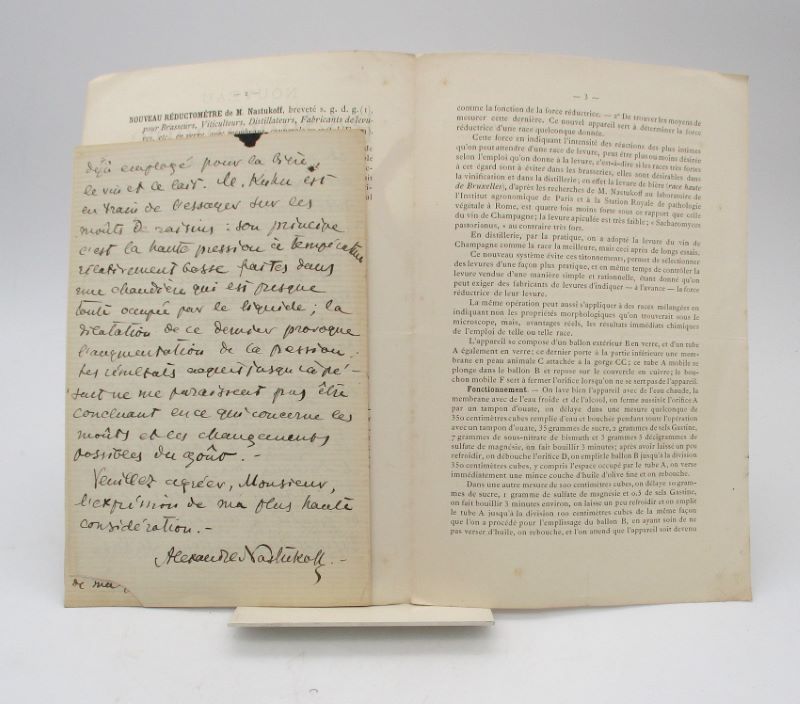 NOUVEAU RÉDUCTOMÈTRE de M. Nastukoff, breveté s. g. d. g. (1),
pour Brasseurs, Viticulteurs, Distillateurs, Fabricants de levu-
déjà employé pour la bière,
le vin et le lait. M. Kuhn est
en train de l'essayer sur les
moûts de raisins : son principe
c'est la haute pression à température
relativement basse faites dans
une chaudière qui est presque
toute occupée par le liquide ; la
dilatation de ce dernier provoque
l'augmentation de la pression.
Les résultats acquis jusqu'à pré-
sent ne me paraissent pas être
concluant en ce qui concerne les
moûts et les changements
possibles du goût. –
Veuillez agréer, Monsieur,
l'expression de ma plus haute
considération. –
Alexandre Nastukoff. –
de ma
— 3 —
comme la fonction de la force réductrice. — 2° De trouver les moyens de
mesurer cette dernière. Ce nouvel appareil sert à déterminer la force
réductrice d'une race quelconque donnée.
Cette force en indiquant l'intensité des réactions des plus intimes
qu'on peut attendre d'une race de levure, peut être plus ou moins désirée
selon l'emploi qu'on donne à la levure, c'est-à-dire si les races très fortes
à cet égard sont à éviter dans les brasseries, elles sont désirables dans
la vinification et dans la distillerie; en effet la levure de bière (race haute
de Bruxelles), d'après les recherches de M. Nastukoff au laboratoire de
l'Institut agronomique de Paris et à la Station Royale de pathologie
végétale à Rome, est quatre fois moins forte sous ce rapport que celle
du vin de Champagne; la levure apiculée est très faible; « Saccaromyces
pastorianus, » au contraire très fort.
En distillerie, par la pratique, on a adopté la levure du vin de
Champagne comme la race la meilleure, mais ceci après de longs essais.
Ce nouveau système évite ces titonnements, permet de sélectionner
des levures d'une façon plus pratique, et en même temps de contrôler la
levure vendue d'une manière simple et rationnelle, étant donné qu'on
peut exiger des fabricants de levures d'indiquer — à l'avance — la force
réductrice de leur levure.
La même opération peut aussi s'appliquer à des races mélangées en
indiquant non les propriétés morphologiques qu'on trouverait sous le
microscope, mais, avantages réels, les résultats immédiats chimiques
de l'emploi de telle ou telle race.
L'appareil se compose d'un ballon extérieur B en verre, et d'un tube
A également en verre; ce dernier porte à la partie inférieure une mem-
brane en peau animale C attachée à la gorge CC; ce tube A mobile se
plonge dans le ballon B et repose sur le couvercle en cuivre; le bou-
chon mobile F sert à fermer l'orifice lorsqu'on ne se sert pas de l'appareil.
Fonctionnement. — On lave bien l'appareil avec de l'eau chaude, la
membrane avec de l'eau froide et de l'alcool, on ferme aussitôt l'orifice A
par un tampon d'ouate, on délaye dans une mesure quelconque de
350 centimètres cubes remplie d'eau et bouchée pendant toute l'opération
avec un tampon d'ouate, 35 grammes de sucre, 3 grammes de sels Gastine,
7 grammes de sous-nitrate de bismuth et 3 grammes 5 décigrammes de
sulfate de magnésie, on fait bouillir 3 minutes; après avoir laissé un peu
refroidir, on débouche l'orifice D, on emplit le ballon B jusqu'à la division
350 centimètres cubes, y compris l'espace occupé par le tube A, on verse
immédiatement une mince couche d'huile d'olive fine et on rebouche.
Dans une autre mesure de 100 centimètres cubes, on délaye 10 gram-
mes de sucre, 1 gramme de sulfate de magnésie et 0,5 de sels Gastine,
on fait bouillir 3 minutes environ, on laisse un peu refroidir et on emplit
le tube A jusqu'à la division 100 centimètres cubes de la même façon
que l'on a procédé pour l'emplissage du ballon B, en ayant soin de ne
pas verser d'huile, on rebouche, et l'on attend que l'appareil soit devenu